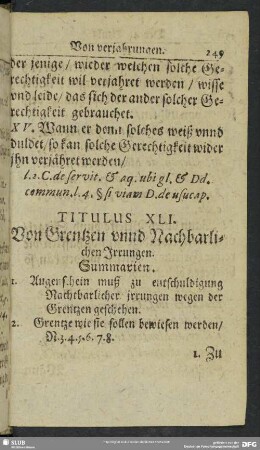 Von verjahrungen. 249
der jenige / wieder welchen solche Ge-
rechtigkeit wil verjahret werden / wisse
vnd leide / das sich der ander solcher Ge-
rechtigkeit gebrauchet.
XV. Wann er denn solches weiß vnnd
duldet / so kan solche Gerechtigkeit wider
jhn verjahret werden /
l. 2. C. de servit. & aq. ubi gl. & Dd.
commun. l. 4. § si viam D. de usucap.
TITULUS XLI.
Von Grentzen vnnd Nachbarli-
chen Irrungen.
Summarien.
1. Augenschein muß zu entschuldigung
Nachtbarlicher jrrungen wegen der
Grentzen geschehen.
2. Grentze wie sie sollen bewiesen werden /
N. 3. 4. 5. 6. 7. 8.
1. Zu
SLUB
DFG